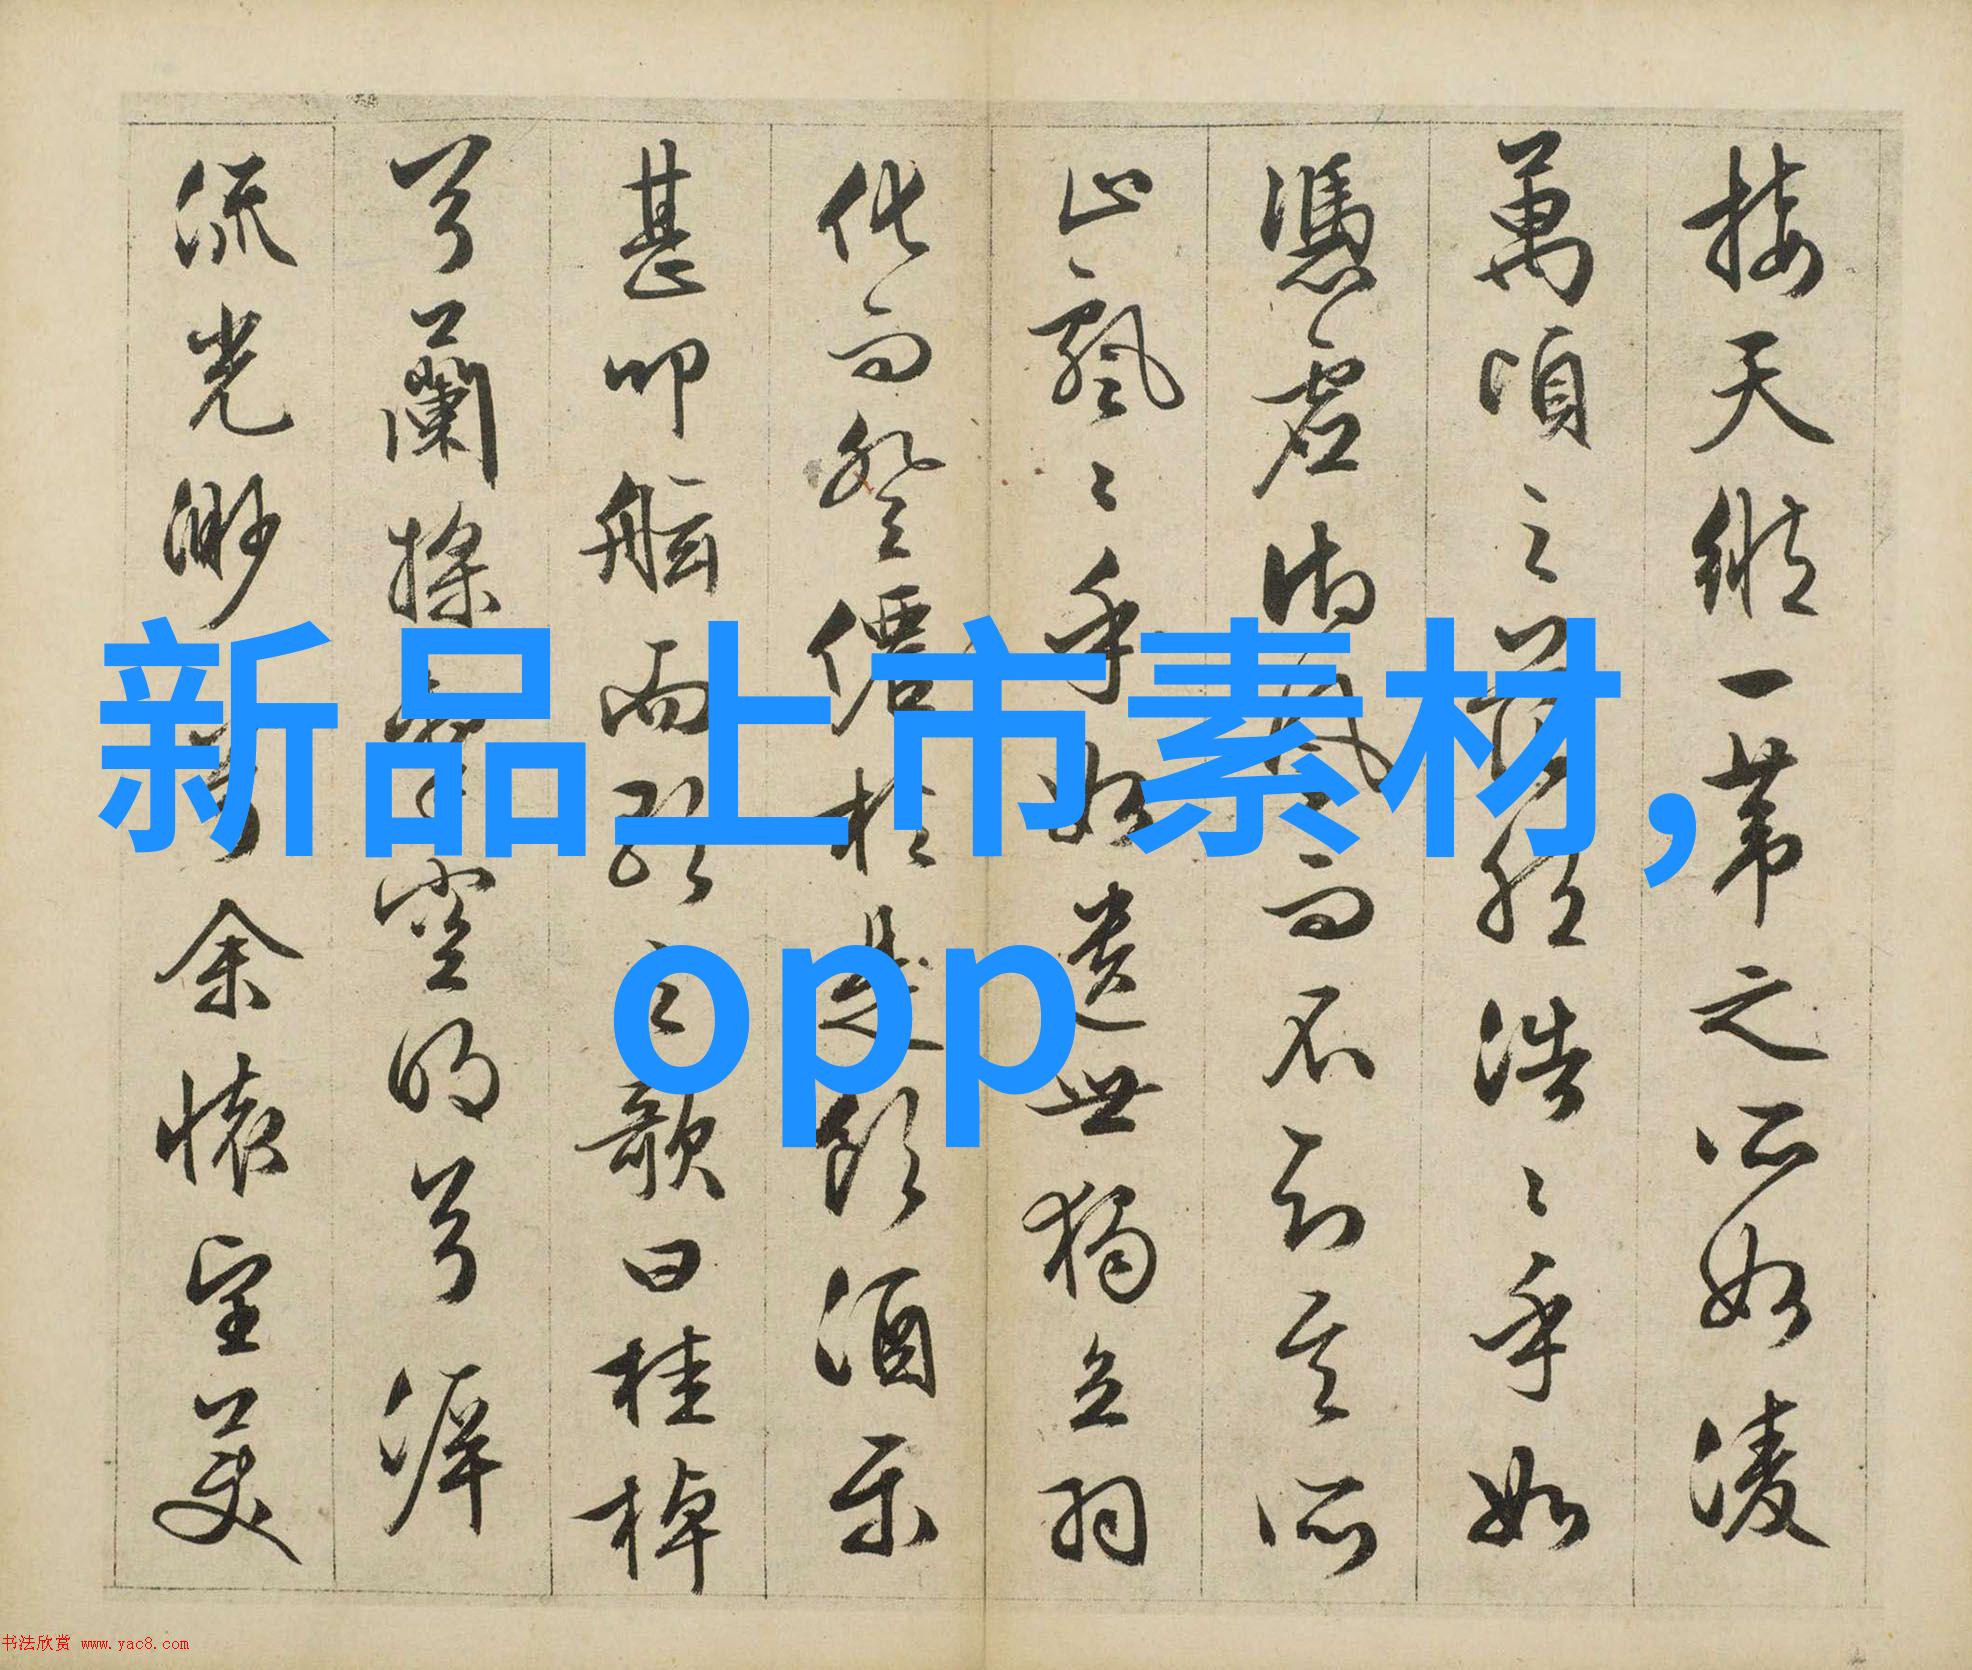 接天縱一葦之所如凌
萬頃之茫然浩〻乎如
憑虛御風而不知其所
止飄〻乎如遺世獨立羽
化而登僊於是飲酒樂
甚叩舷而歌之歌曰桂棹
兮蘭槳擊空明兮泝
流光渺兮余懷望美
新品上市素材,
opp
书法欣赏 www.yac8.com